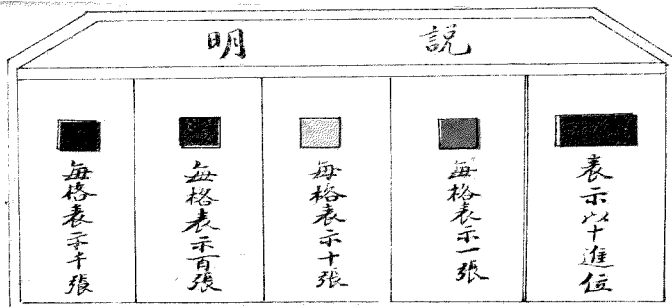 說明
表示以十進位
每格表示一張
每格表示十張
每格表示百張
每格表示千張